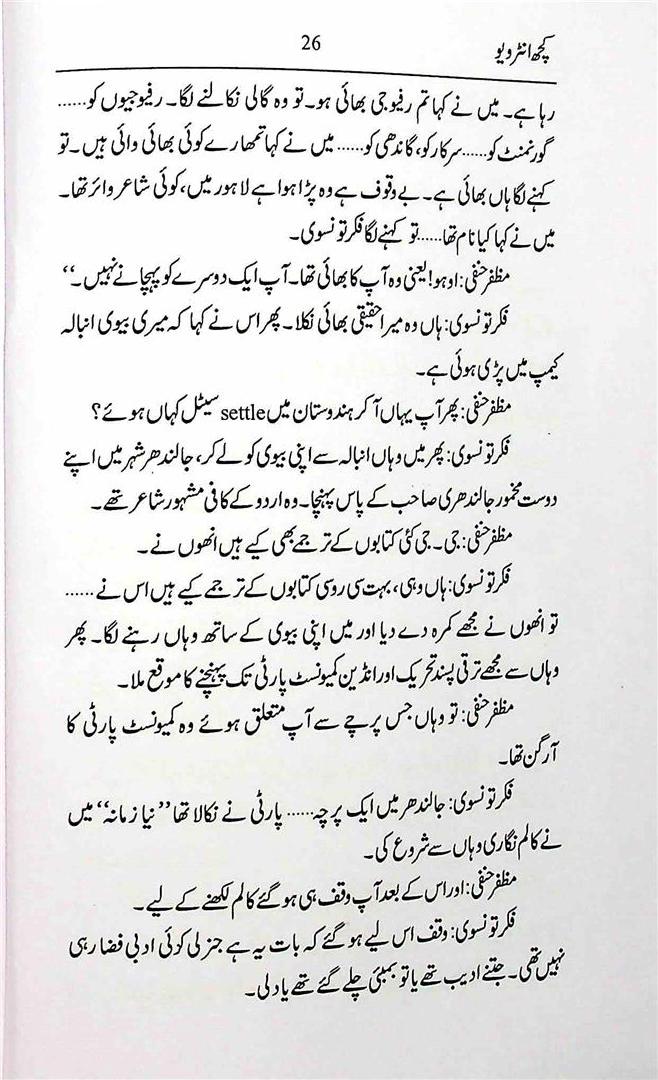 کچھ انٹرویو
26
رہا ہے۔ میں نے کہا تم رفیوجی بھائی ہو۔ تو وہ گالی نکالنے لگا۔ رفیوجیوں کو......
گورنمنٹ کو...... سرکار کو، گاندھی کو...... میں نے کہا تمھارے کوئی بھائی وائی ہیں۔ تو
کہنے لگا ہاں بھائی ہے۔ بے وقوف ہے وہ پڑا ہوا ہے لاہور میں، کوئی شاعر وائر تھا۔
میں نے کہا کیا نام تھا...... تو کہنے لگا فکر تونسوی۔
مظفر حنفی: اوہو! یعنی وہ آپ کا بھائی تھا۔ آپ ایک دوسرے کو پہچانے نہیں۔‘‘
فکر تونسوی: ہاں وہ میرا حقیقی بھائی نکلا۔ پھر اس نے کہا کہ میری بیوی انبالہ
کیمپ میں پڑی ہوئی ہے۔
مظفر حنفی: پھر آپ یہاں آ کر ہندوستان میں settle سیٹل کہاں ہوئے؟
فکر تونسوی: پھر میں وہاں انبالہ سے اپنی بیوی کو لے کر، جالندھر شہر میں اپنے
دوست مخمور جالندھری صاحب کے پاس پہنچا۔ وہ اردو کے کافی مشہور شاعر تھے۔
مظفر حنفی: جی۔ جی کئی کتابوں کے ترجمے بھی کیے ہیں انھوں نے۔
فکر تونسوی: ہاں وہی، بہت سی روسی کتابوں کے ترجمے کیے ہیں اس نے ......
تو انھوں نے مجھے کمرہ دے دیا اور میں اپنی بیوی کے ساتھ وہاں رہنے لگا۔ پھر
وہاں سے مجھے ترقی پسند تحریک اور انڈین کمیونسٹ پارٹی تک پہنچنے کا موقع ملا۔
مظفر حنفی: تو وہاں جس پرچے سے آپ متعلق ہوئے وہ کمیونسٹ پارٹی کا
آرگن تھا۔
فکر تونسوی: جالندھر میں ایک پرچہ...... پارٹی نے نکالا تھا ’’نیا زمانہ‘‘ میں
نے کالم نگاری وہاں سے شروع کی۔
مظفر حنفی: اور اس کے بعد آپ وقف ہی ہو گئے کالم لکھنے کے لیے۔
فکر تونسوی: وقف اس لیے ہو گئے کہ بات یہ ہے جنرلی کوئی ادبی فضا رہی
نہیں تھی۔ جتنے ادیب تھے یا تو بمبئی چلے گئے تھے یا دلی۔